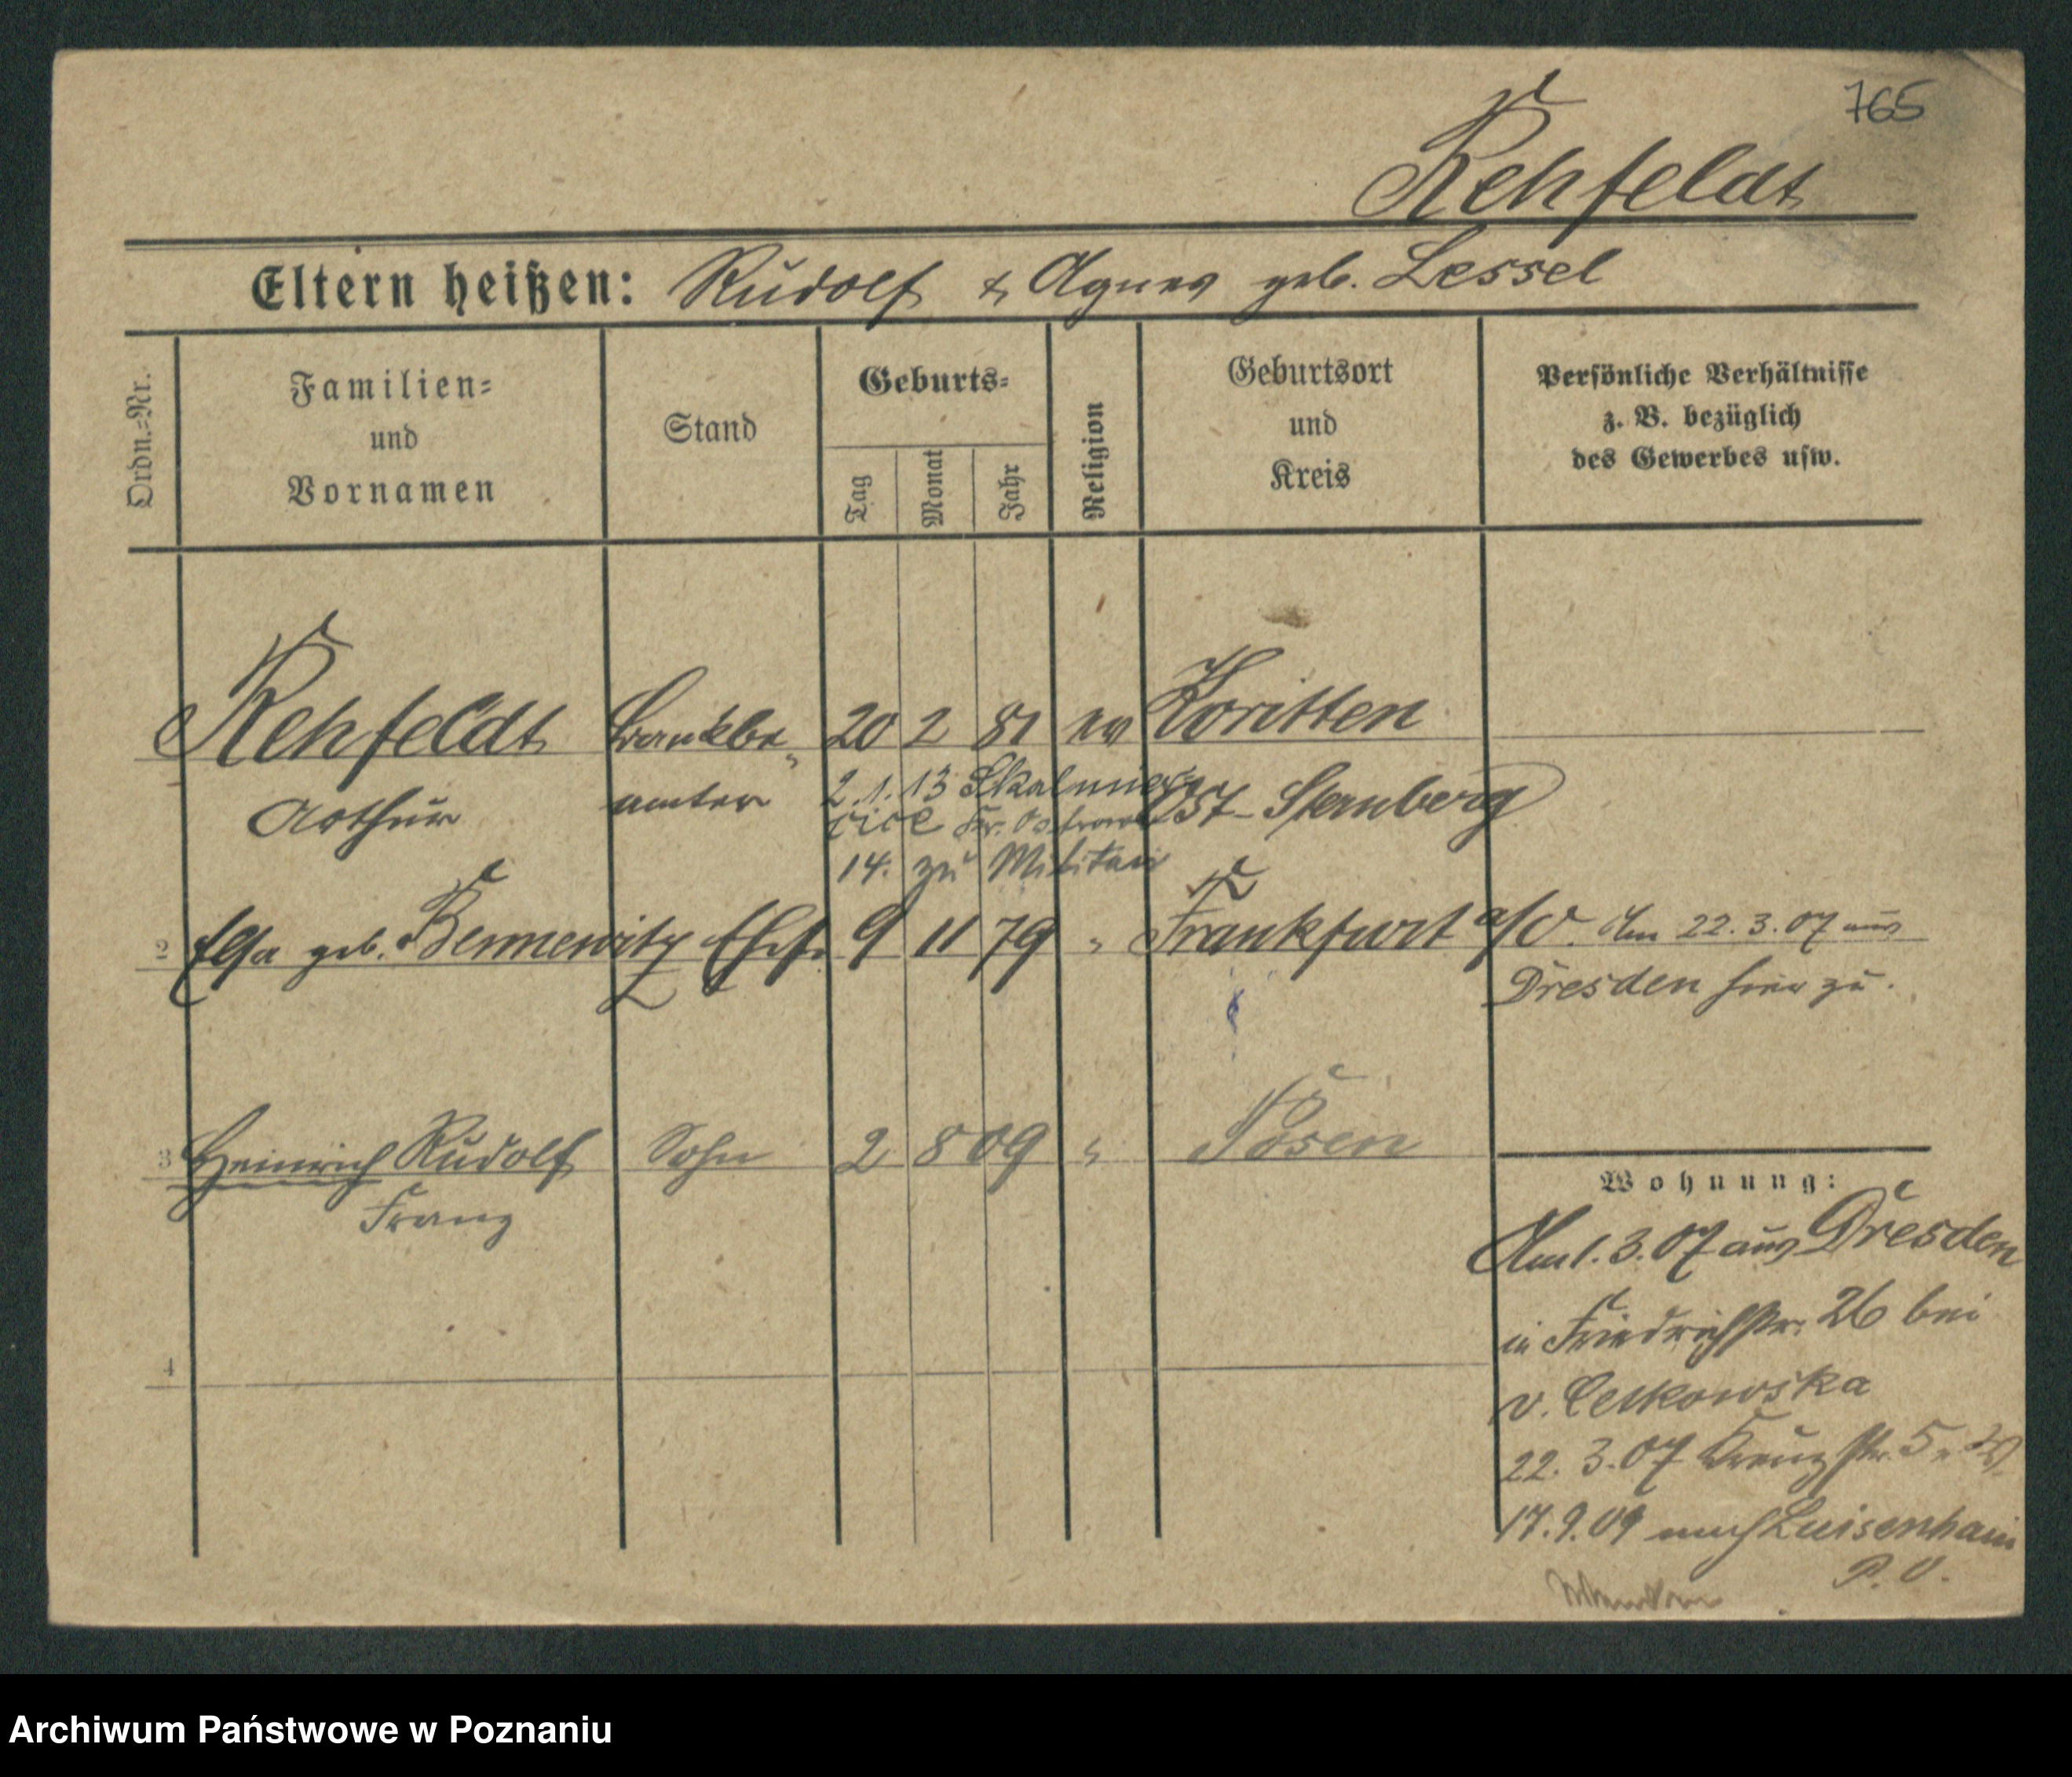 765
Rehfeldt
Eltern heißen: Rudolf & Agnes geb. Lessel
Ordn.=Nr.
Familien=
und
Vornamen
Stand
Geburts=
Tag
Monat
Jahr
Religion
Geburtsort
und
Kreis
Persönliche Verhältnisse
z. B. bezüglich
des Gewerbes usw.
Rehfeldt Bankbe 20 2 81 ev Koritten
Arthur amter Ost-Sternberg
2.1.13 Skalmier
Kr. Ostrowo
14. zu Militair
2 Elsa geb. Bennewitz Ehefr 9 11 79 " Frankfurt a/O. Am 22.3.07 aus
Dresden hier zu.
3 Heinrich Rudolf Sohn 2 8 09 " Posen
Franz
4
Wohnung:
Am 1.3.07 aus Dresden
in Friedrichstr. 26 bei
v.
22.3.07 Kreuzstr. 5
17.9.09 nach Luisenhain
P. O.
Archiwum Państwowe w Poznaniu